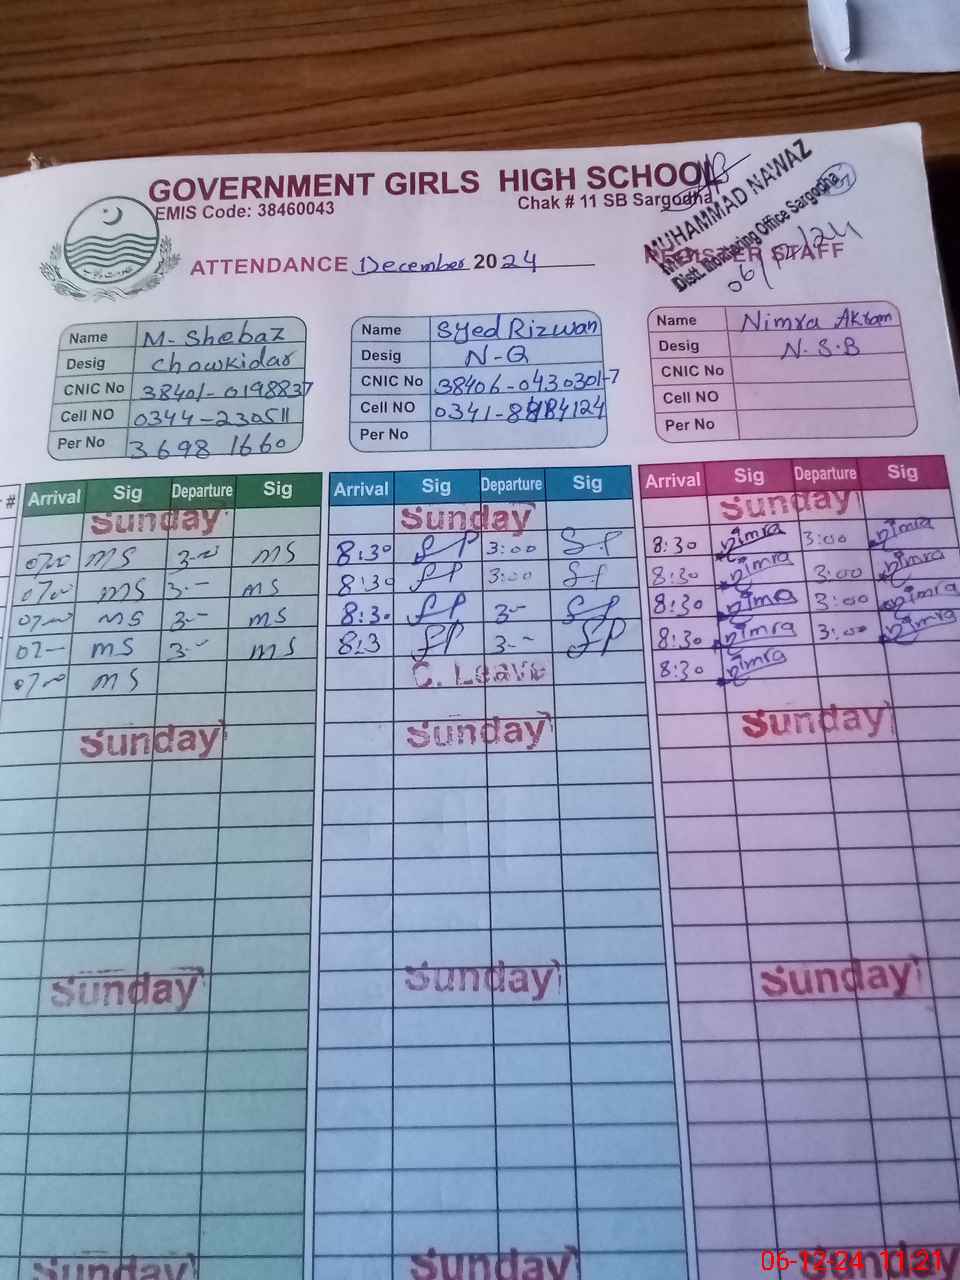 GOVERNMENT GIRLS HIGH SCHOOL
EMIS Code: 38460043
Chak # 11 SB Sargodha
MUHAMMAD NAWAZ
Distt. Monitoring Office Sargodha
ATTENDANCE December 2024
REGISTER STAFF
06/12/24
Name M- Shebaz
Desig Chowkidar
CNIC No 38401-0198837
Cell NO 0344-230511
Per No 36981660
Name Syed Rizwan
Desig N-Q
CNIC No 38406-0430301-7
Cell NO
Per No
Name Nimra Akram
Desig N.S.B
CNIC No
Cell NO
Per No
# Arrival Sig Departure Sig Arrival Sig Departure Sig Arrival Sig Departure Sig
Sunday Sunday Sunday
07.00 MS 3-00 MS 8:30 3:00 8:30 nimra 3:00 nimra
0700 MS 3-- MS 8:30 3:00 8:30 nimra 3:00 nimra
07-00 MS 3-- MS 8:30 3-- 8:30 nimra 3:00 nimra
07-- MS 3-- MS 8:3 3-- 8:30 nimra 3:00 nimra
0700 MS C. Leave 8:30 nimra
Sunday Sunday Sunday
Sunday Sunday Sunday
Sunday Sunday Sunday
06-12-24 11:21